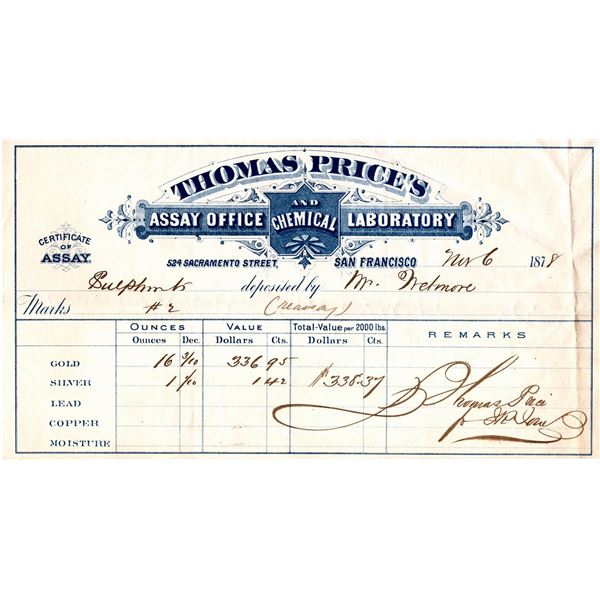 THOMAS PRICE'S
ASSAY OFFICE AND CHEMICAL LABORATORY
CERTIFICATE OF ASSAY.
524 SACRAMENTO STREET, SAN FRANCISCO Nov 6 1878
Sulphurets deposited by Mr. Wetmore
Marks #2 (reassay)
OUNCES VALUE Total-Value per 2000 lbs. REMARKS
Ounces Dec. Dollars Cts. Dollars Cts.
GOLD 16 3/10 336 95
SILVER 1 1/10 1 42 $338.37
LEAD Thomas Price
COPPER
MOISTURE